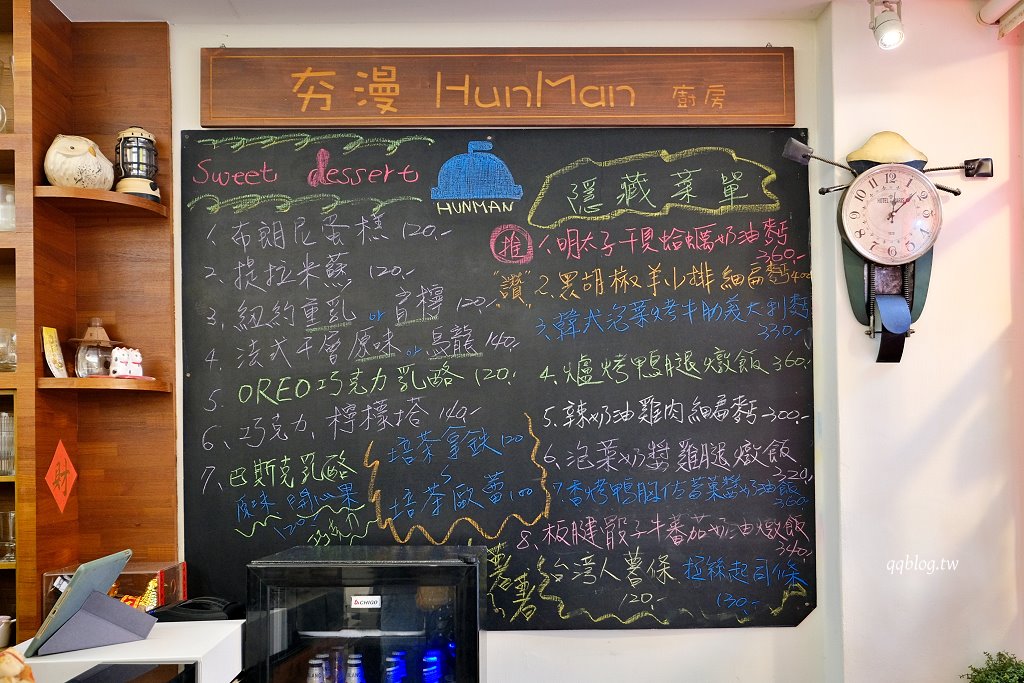 夯漫 HunMan 廚房
Sweet dessert
HUNMAN
1. 布朗尼蛋糕 120.-
2. 提拉米蘇 120.-
3. 紐約重乳 or 盲檸 120.-
4. 法式千層原味 or 烏龍 140.-
5. OREO巧克力乳酪 120.-
6、巧克力、檸檬塔 140.-
7、巴斯克乳酪
原味、開心果
120.-
焙茶拿鉄 120
焙茶歐蕾 100
隱藏菜單
推 1.明太子干貝蛤蠣奶油麵 360.-
"讚" 2.黑胡椒羊小排細扁麵 400
3.韓式泡菜烤牛肋義大利麵 330.-
4.爐烤鴨腿燉飯 360.-
5.辣奶油雞肉細扁麵 300.-
6、泡菜奶醬雞腿燉飯 320.-
7.香烤鴨胸佐蒔菜醬奶油飯 360.-
8、板腱骰子牛蕃茄奶油燉飯 340.-
薯薯
台湾人薯條 120.-
粗絲起司條 130.-
DCHIGO
財
qqblog.tw